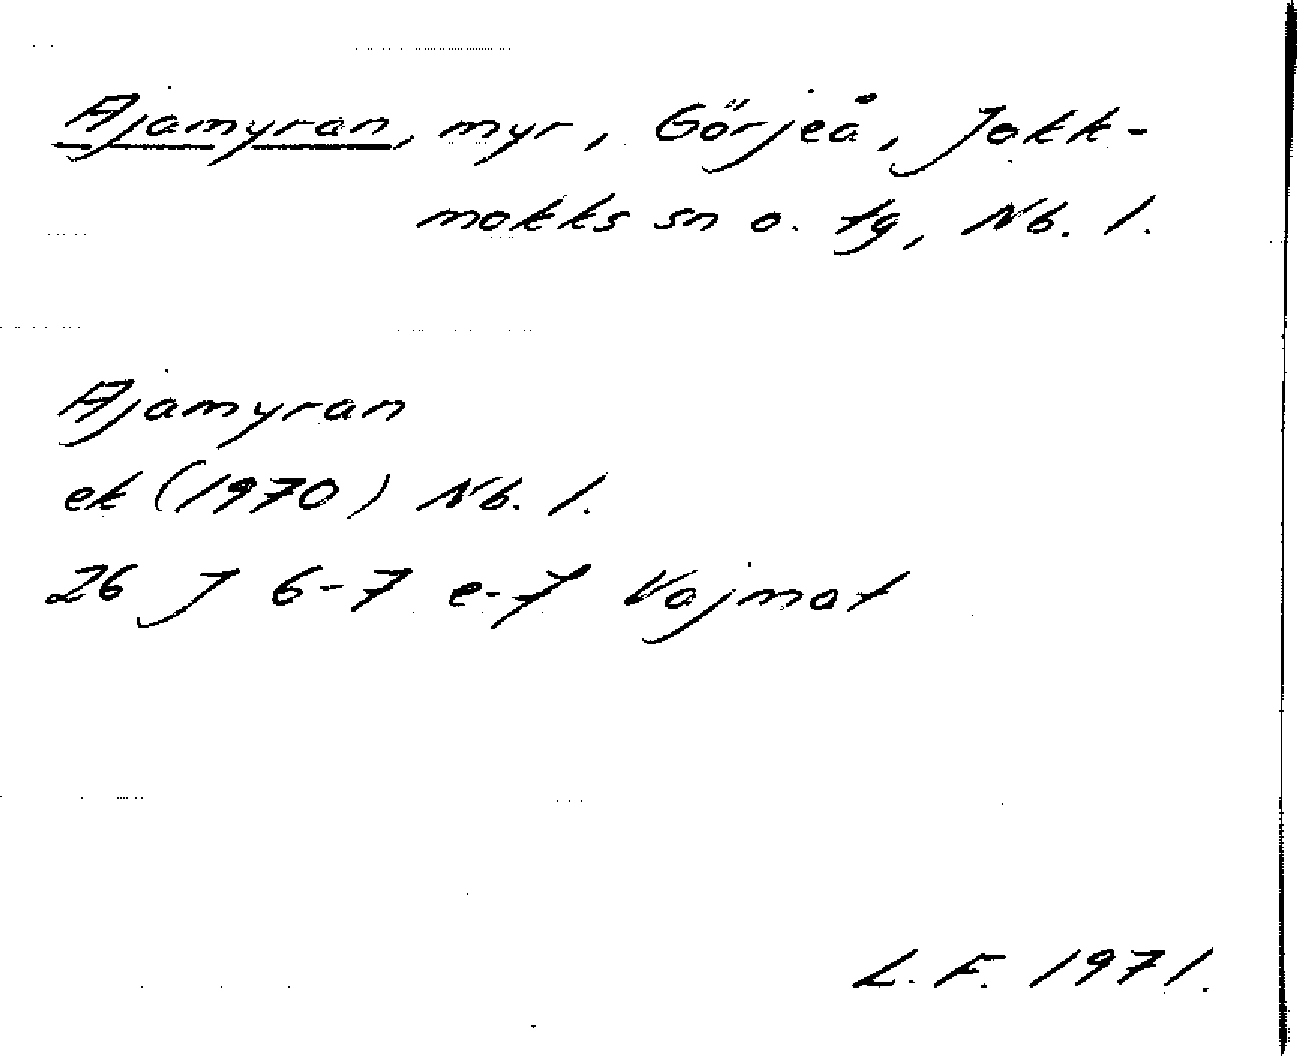 Ajamyran, myr, Görjeå, Jokk-
mokks sn o. tg, Nb. l.
Ajamyran
ek (1970) Nb. l.
26 J 6-7 e-f Vajmat
L. F. 1971.